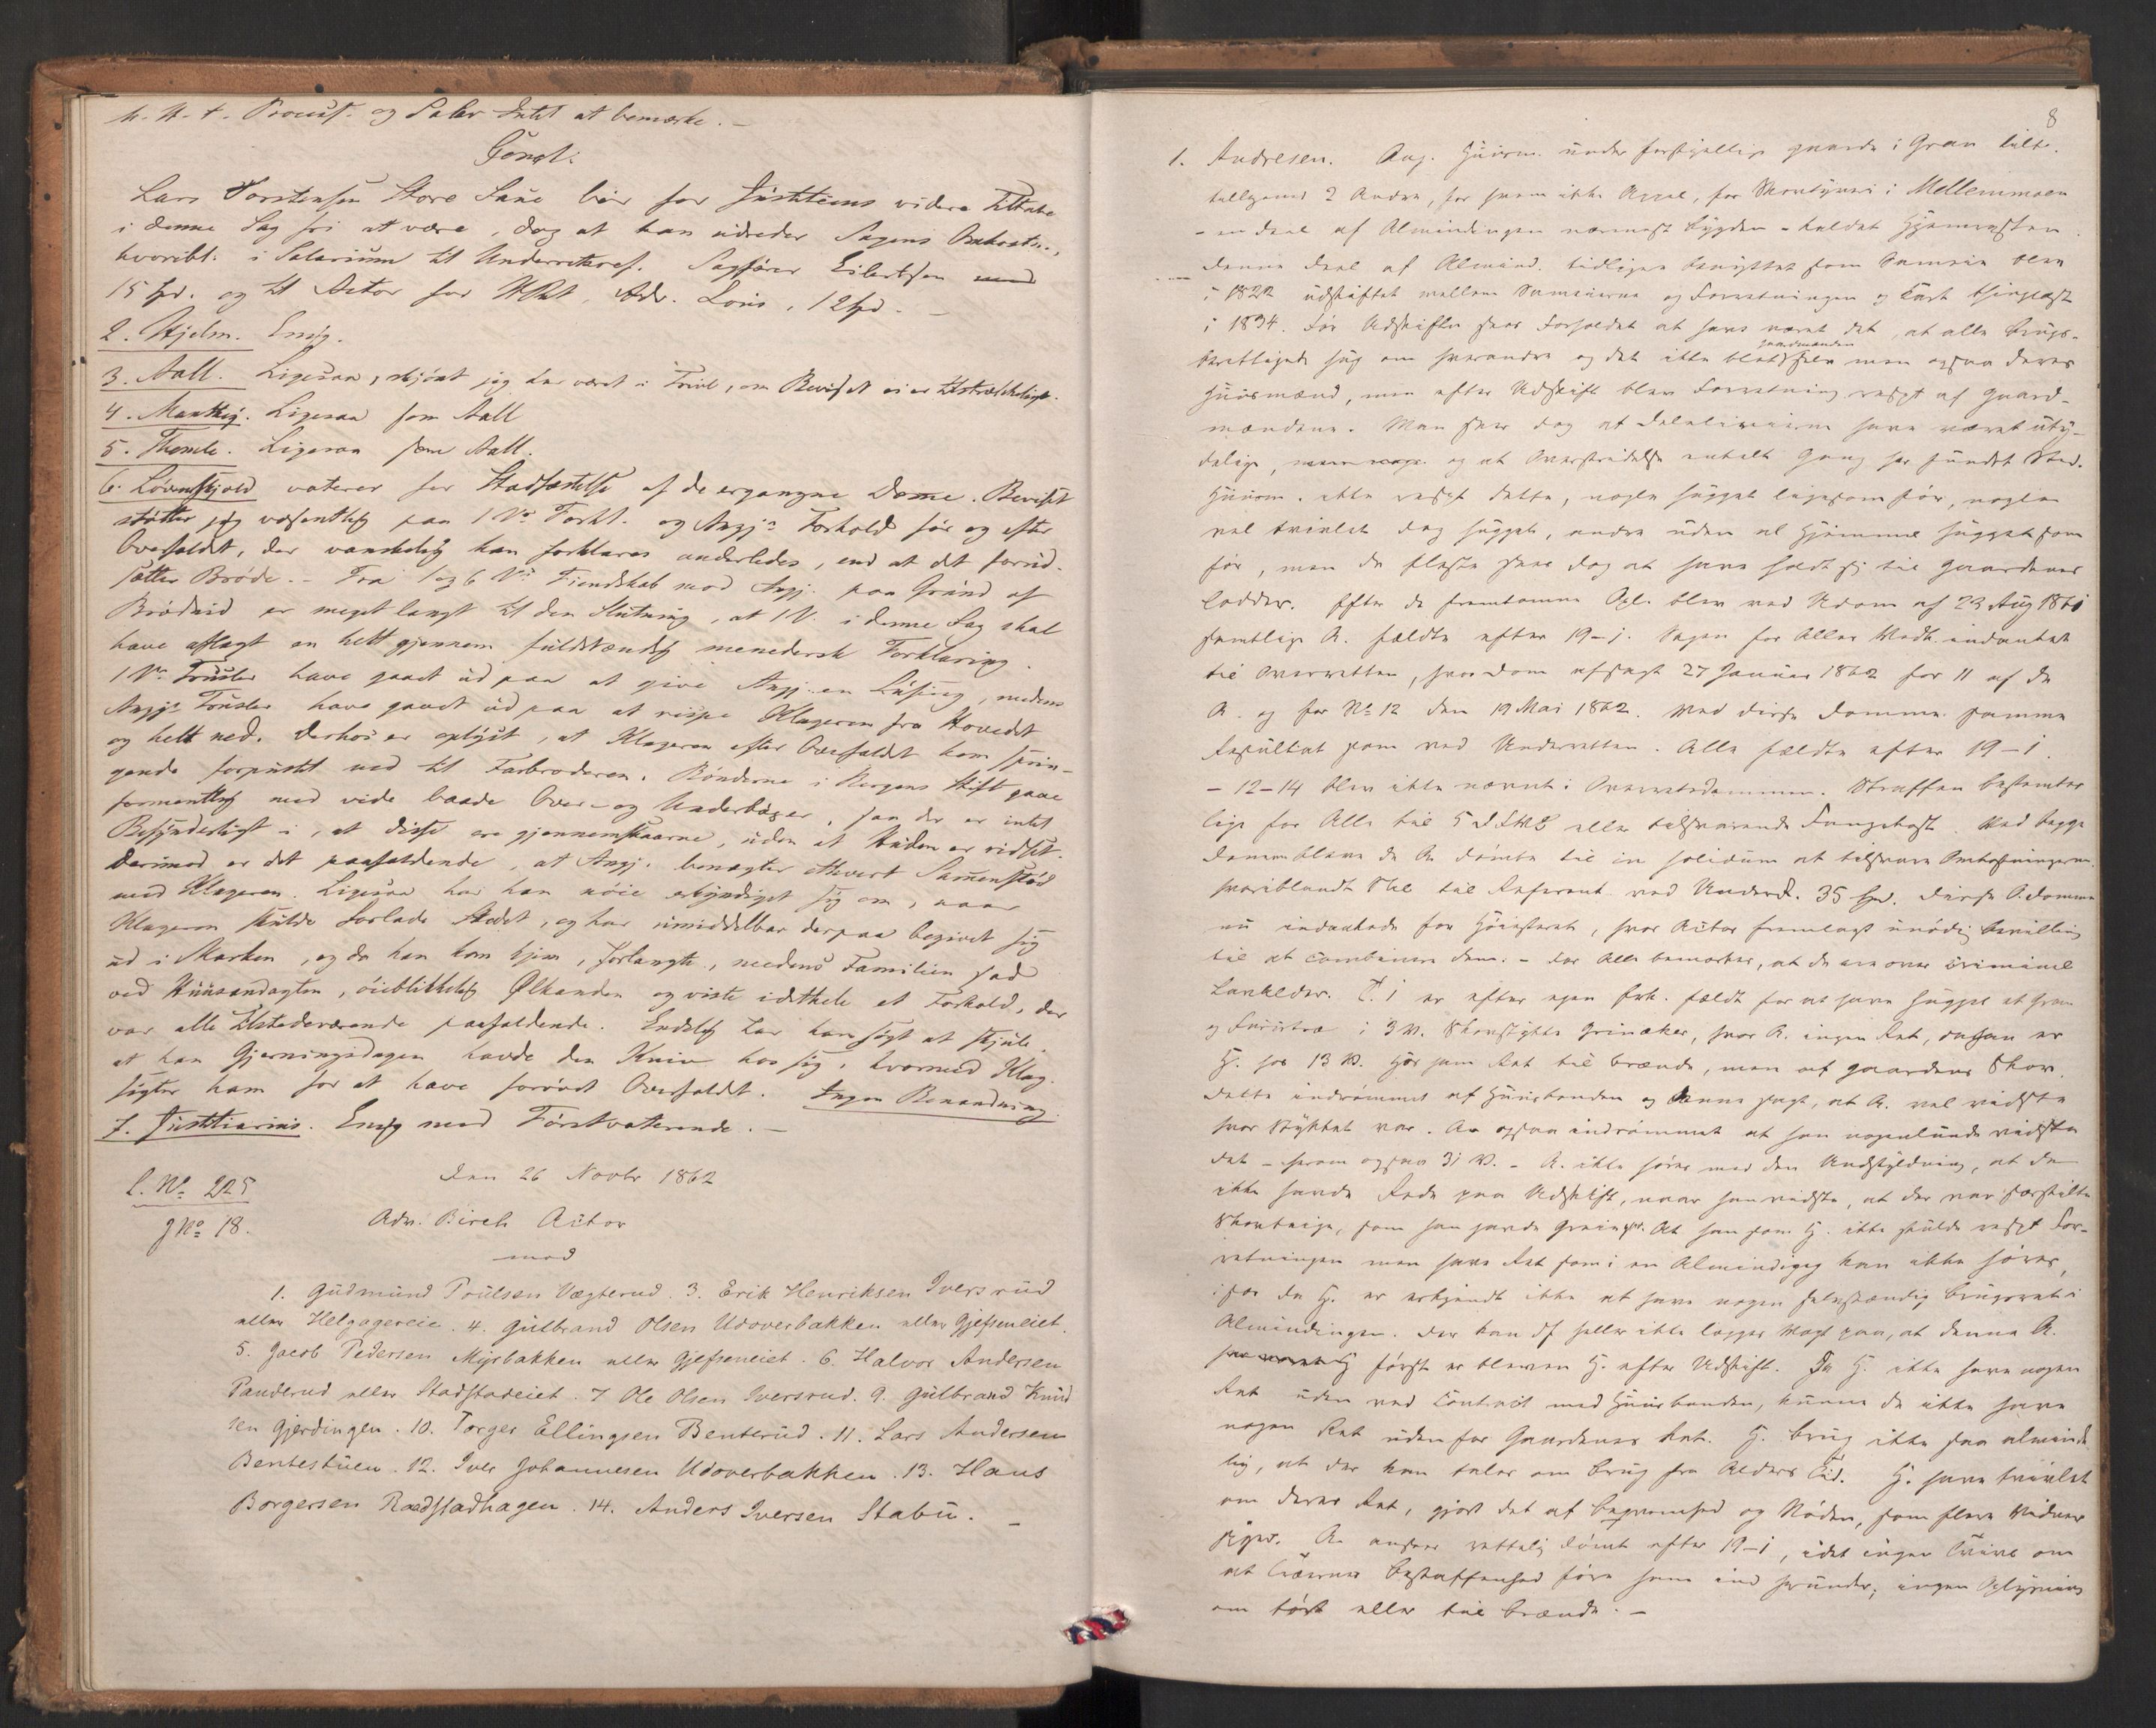 Procust. og Salær Intet at bemærke. —
Const:
Lars Torstensen Store Saue bør for Justitiens videre Tiltale
i denne Sag fri at være, dog at han udreder Sagens Omkostn.,
hvoribl: i Salarium til Underretssagf. Sagfører Eilertsen
15 Spd. og til Actor for HRet, Adv. Lous, 12 Spd. —
2. Hjelm. Enig.
3. Aall. Ligesaa, skjønt jeg har været i Tvivl, om Beviset ei er tilstrækkeligt.
4. Manthey. Ligesaa som Aall
5. Thomle. Ligesaa som Aall.
6. Løvenskjold voterer for Stadfæstelse af de ergangne Domme. Beviset
støtter jeg væsentlig paa 1 Vs Forkl. og Angjs Forhold før og efter
Overfaldet, der vanskelig kan forklares anderledes, end at det forud-
sætter Brøde. — Fra 1 og 6 Vs Fiendskab mod Angj. paa Grund af
Brødnid er meget langt til den Slutning, at 1 V. i denne Sag skal
have aflagt en helt gjennem fuldstændig menedersk Forklaring.
1 Vs Trusler have gaaet ud paa at give Angj. en Lusing, medens
Angjs Trusler have gaaet ud paa at rispe Klageren fra Hovedet
og helt ned. Derhos er oplyst, at Klageren efter Overfaldet kom sprin-
gende forpustet ned til Farbroderen. Bønderne i Bergens Stift gaae
formentlig med vide baade Over- og Underbuxer, saa der er intet
Besynderligt i, at disse ere gjennemskaarne, uden at Huden er ridset.
Derimod er det paafaldende, at Angj. benægter ethvert Sammenstød
med Klageren. Ligesaa har han nøie erkyndiget sig om, naar
Klageren skulde forlade Stedet, og har umiddelbar derpaa begivet sig
ud i Marken, og da han kom hjem, forlangte, medens Familien sad
ved Huusandagten, øieblikkelig Ølkanden og viste idethele et Forhold, der
var alle Tilstedeværende paafaldende. Endelig har han søgt at skjule,
at han Gjerningsdagen havde den Kniv hos sig, hvormed Klag.
sigter ham for at have forøvet Overfaldet. Ingen Benaadning.
7. Justitiarius. Enig med Førstvoterende. —
L. No 225
J No 18.
Den 26 Novbr 1862
Adv. Birch Actor
mod
1. Gudmund Poulsen Vægterud. 3. Erik Henriksen Iversrud
eller Helgageneie. 4. Gulbrand Olsen Udoverbakken eller Gjefseneiet.
5. Jacob Pedersen Myrbakken eller Gjefseneiet. 6. Halvor Andersen
Panderud eller Stadstadeiet. 7 Ole Olsen Iversrud. 9. Gulbrand Knud
sen Gjerdingen. 10. Torger Ellingsen Benterud. 11. Lars Andersen
Bentestuen. 12. Iver Johannesen Udoverbakken. 13. Hans
Borgersen Raadstadhagen. 14. Anders Iversen Stabu. —
8
1. Andresen. Ang. Huusm. under forskjellige gaarde i Gran tilt.
tilligemed 2 Andre, for hvem ikke Appel, for Skovtyveri i Mellemmoen
- en deel af Almindingen nærmest Bygden - kaldet Hjemmesten.
Denne deel af Almind. tidligere benyttet som Sameie blev
i 1822 udskiftet mellem Sameierne og Forretningen og Kart thinglæst
i 1834. Før Udskiften skal Forholdet at have været det, at alle brugs-
berettigede hug om hverandre og det ikke blot gaardmanden selv men ogsaa deres
huusmænd, men efter Udskift blev Forretning respt af gaard-
mændene. Man seer dog at Delelinierne have været uty-
delige, og at Overtrædelse enkelt Gang har fundet Sted.
Huusm. ikke respt dette, nogle hugget ligesom før, nogle
vel tvivlet dog hugget, andre uden al Hjemmel hugget som
før, men de fleste skal dog at have holdt sig til gaardenes
lodder. Efter de fremkomne Opl. blev ved Udom af 23 Aug 1861
samtlige A. fældte efter 19-1. Sagen for Alles Vedk. indanket
til Overretten, hvor Dom afsagt 27 Januar 1862 for 11 af de
A. og for No 12 den 19 Mai 1862. Ved disse Domme samme
Resultat som ved Underretten. Alle fældte efter 19-1.
- 12-14 blev ikke nævnt i Overretsdommen. Straffen bestemtes
lige for Alle til 5 D F V & B eller tilsvarende Fangekost. Ved begge
domme bleve de A. dømte til in solidum at tilsvare Omkostningerne.
hvoriblandt Skl til Referent ved Underr. 35 Spd. Disse O. domme
nu indankede for Høiesteret, hvor Actor fremlagt unødig bevilling
til at combinere dem. - For Alle bemærkes, at de ere over criminel
Lavalder. T. 1 er efter egen Erk. fældt for at have hugget et Gran
og Furutræ i 3 V. Skovstykke Grinaker, hvor A. ingen Ret, da han er
H. hos 13 V. hos ham Ret til brænde, men af gaardens Skov.
Dette indrømmet af Huusbonden og denne sagt, at A. vel vidste
hvor Stykket var. A. ogsaa indrømmet at han nogenlunde vidste
det - hvorom ogsaa 31 V. - A. ikke høres med den Undskyldning, at de
ikke havde Rede paa Udskift, naar han vidste, at der var særskilte
Skovteige, som han havde At han som H. ikke skulde respt For-
retningen men have Ret som i en Alminding kan ikke høres,
ifor da H. er erkjendt ikke at have nogen selvstændig brugsret i
Almindingen. Der kan df heller ikke lægges Vægt paa, at denne A.
først er bleven H. efter Udskift. Da H. ikke have nogen
Ret uden ved Contract med Huusbonden, kunne de ikke have
nogen Ret udenfor Gaardenes Ret. H. brug ikke saa alminde
lig, at der kan tales om brug fra Alders Tid. H. have tvivlet
om deres Ret, gjort det af og Nøden, som flere Vidner
siger. A. ansees rettelig dømt efter 19-1, idet ingen Tvivl om
at Træernes beskaffenhed føre ham ind herunder, ingen Oplysning
om tørt eller til brænde. —